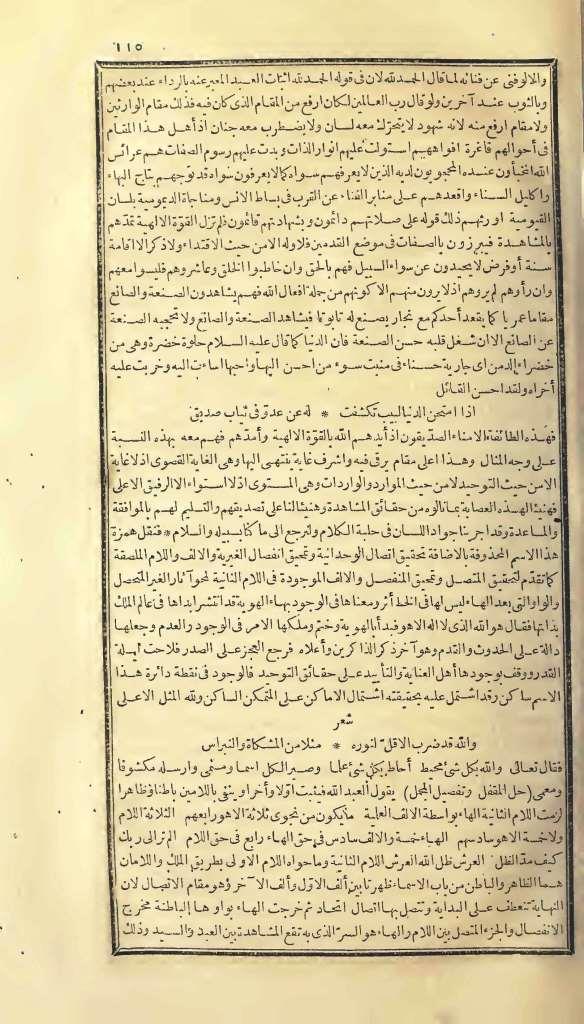 ١١٥
والا لو فنى عن فنائه لما قال الحمد لله لان فى قوله الحمد لله اثبات العبد المعبر عنه بالرداء عند بعضهم
وبالثوب عند آخرين ولو قال رب العالمين لكان ارفع من المقام الذى كان فيه فذلك مقام الوارثين
ولا مقام ارفع منه لانه شهود لا يتحرّك معه لسان ولا يضطرب معه جنان اذ أهل هذا المقام
فى أحوالهم فاغرة افواههم استولت عليهم انوار الذات وبدت عليهم رسوم الصفات هم عرائس
الله المخبأون عنده المحجوبون لديه الذين لا يعرفهم سواه كما لا يعرفون سواه قد توجهم بتاج البهاء
واكليل السناء واقعدهم على منابر الفناء عن القرب فى بساط الانس ومناجاة الديمومية بلسان
القيومية اورثهم ذلك قوله على صلاتهم دائمون وبشهادتهم قائمون فلم تزل القوّة الالهية تمدّهم
بالمشاهدة فيبرزون بالصفات فى موضع القدمين فلا وله الا من حيث الاقتداء ولا ذكر الا اقامة
سنة أو فرض لا يحيدون عن سواء السبيل فهم بالحق وان خاطبوا الخلق وعاشروهم فليسوا معهم
وان رأوهم لم يروهم اذ لا يرون منهم الا كونهم من جملة افعال الله فهم يشاهدون الصنعة والصانع
مقاما عمريا كما يقعد أحدكم مع نجار يصنع له تابوتا فيشاهد الصنعة والصانع ولا تحجبه الصنعة
عن الصانع الا ان شغل قلبه حسن الصنعة فان الدنيا كما قال عليه السلام حلوة خضرة وهى من
خضراء الدمن اى جارية حسناء فى منبت سوء من احسن اليها واحبها اساءت اليه وخربت عليه
أخراه ولقد احسن القائل
اذا امتحن الدنيا لبيب تكشفت * له عن عدوّ فى ثياب صديق
فهذه الطائفة الامناء الصدّيقون اذ أيدهم الله بالقوّة الالهية وأمدّهم فهم معه بهذه النسبة
على وجه المثال وهذا اعلى مقام يرقى فيه واشرف غاية ينتهى اليها وهى الغاية القصوى اذ لا غاية
الا من حيث التوحيد لا من حيث الموارد والواردات وهى المستوى اذ لا استواء الا الرفيق الاعلى
فهنيئا لهذه العصابة بما نالوه من حقائق المشاهدة وهنيئا لنا على تصديقهم والتسليم لهم بالموافقة
والمساعدة وقد اجرينا جواد اللسان فى حلبة الكلام ولنرجع الى ما كنا بسبيله والسلام * فنقل همزة
هذا الاسم المحذوفة بالاضافة تحقيق اتصال الوحدانية وتمحيق انفصال الغيرية والالف واللام الملصقة
كما تقدّم لتحقيق المتصل وتمحيق المنفصل والالف الموجودة فى اللام الثانية لمحو آثار الغير المتحصل
والواو التى بعد الهاء ليس لها فى الخط أثر ومعناها فى الوجود بهاء الهوية قد انتشر ابداها فى عالم الملك
بذاتها فقال هو الله الذى لا اله الا هو فبدأ بالهوية وختم وملكها الامر فى الوجود والعدم وجعلها
دالة على الحدوث والقدم وهو آخر ذكر الذاكرين وأعلاه فرجع العجز على الصدر فلاحت ليلة
القدر ووقف بوجودها أهل العناية والتأييد على حقائق التوحيد فالوجود فى نقطة دائرة هذا
الاسم ساكن وقد اشتمل عليه بحقيقته اشتمال الاماكن على المتمكن الساكن ولله المثل الاعلى
شعر
والله قد ضرب الاقلّ لنوره * مثلا من المشكاة والنبراس
فقال تعالى والله بكل شئ محيط أحاط بكل شئ علما وصير الكل اسما ومسمى وارسله مكشوفا
ومعمى (حل المقفل وتفصيل المجمل) يقول العبد الله فيثبت اوّلا وآخرا وينفى باللامين باطنا وظاهرا
لزمت اللام الثانية الهاء بواسطة الالف العلمية ما يكون من نجوى ثلاثة الا هو رابعهم الثلاثة اللام
ولا خمسة الا هو سادسهم الهاء خمسة والالف سادس فى حق الهاء رابع فى حق اللام الم تر الى ربك
كيف مدّ الظل العرش ظل الله العرش اللام الثانية وما حواه اللام الاولى بطريق الملك واللامان
هما الظاهر والباطن من باب الاسماء ظهرتا بين ألف الاوّل وألف الآخر وهو مقام الاتصال لان
النهاية تنعطف على البداية وتتصل بها اتصال اتحاد ثم خرجت الهاء بواوها الباطنة مخرج
الانفصال والجزء المتصل بين اللام والهاء هو السرّ الذى به تقع المشاهدة بين العبد والسيد وذلك